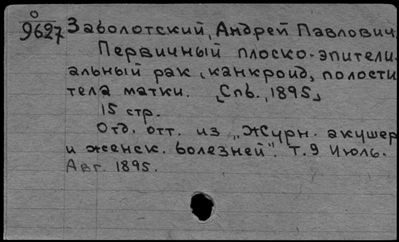 О
9627 Заболотский, Андрей Павлович
Первичный плоско-эпители-
альный рак, канкроид, полости
тела матки. [Спб., 1895]
15 стр.
Отд. отт. из "Журн. акушер
и женск. болезней". Т. 9 Июль.
Авг. 1895.